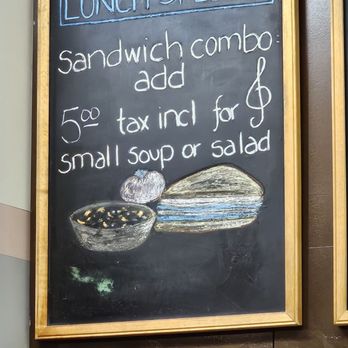 LUNCH
sandwich combo:
add
5.00 tax incl for
small soup or salad